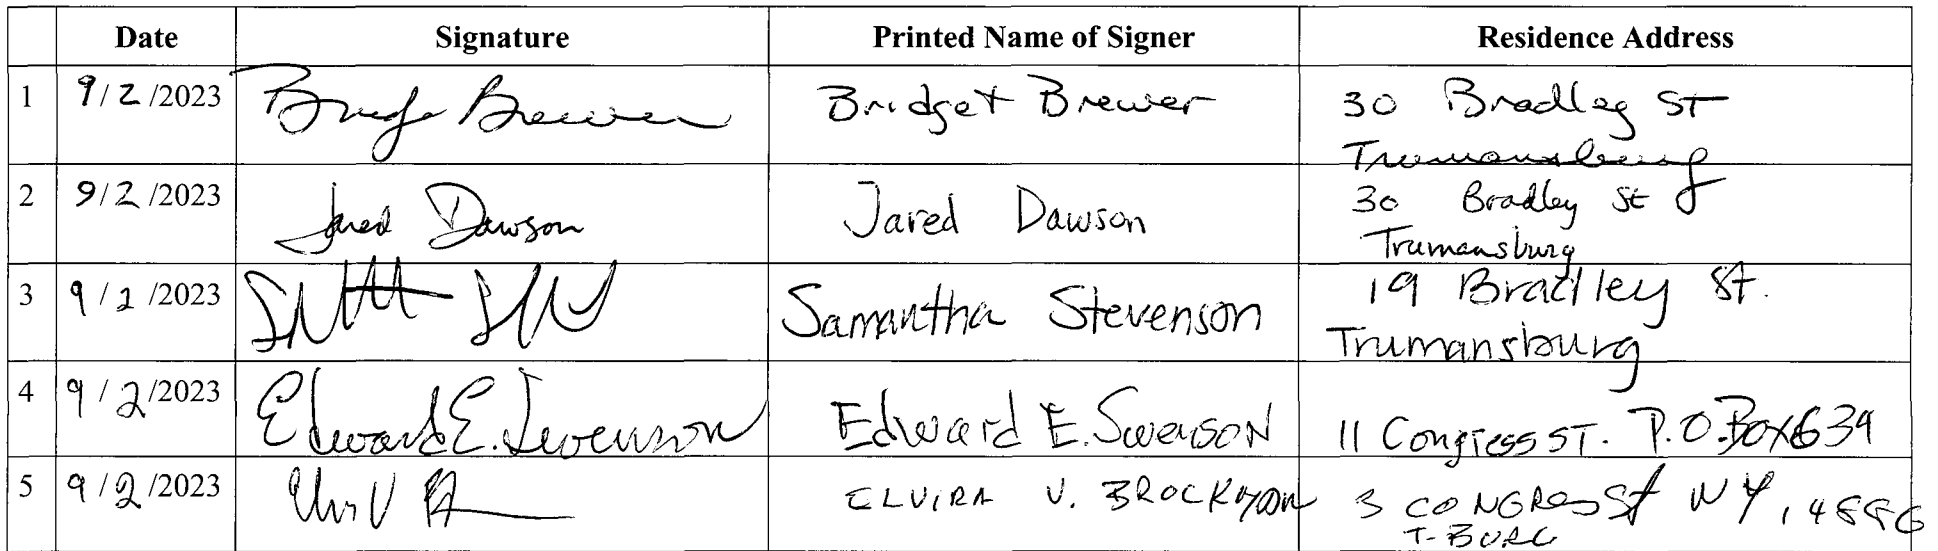 Date Signature Printed Name of Signer Residence Address
1 9/2/2023 Brewer Bridget Brewer 30 Bradley ST
Trumansburg
2 9/2/2023 Jared Dawson Jared Dawson 30 Bradley St
Trumansburg
3 9/2/2023 Samantha Stevenson 19 Bradley St.
Trumansburg
4 9/2/2023 Edward E. Edward E. 11 Congress ST. P.O. Box 639
5 9/2/2023 ELVIRA V. 3 CONGRESS St NY, 14886
T-BURG